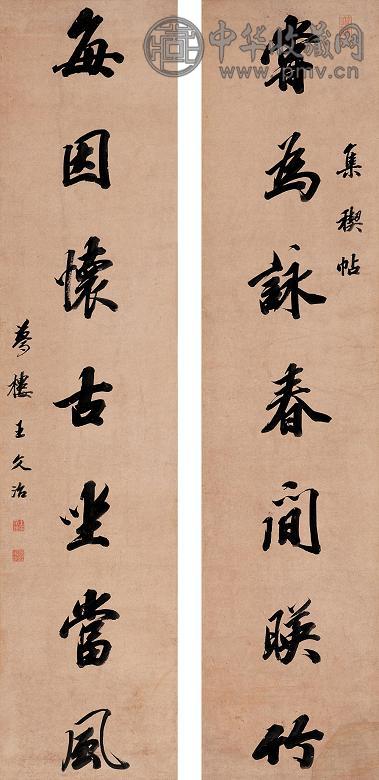 中华收藏网
www.pmv.cn
甞為詠春間暎竹
集稧帖
每因懷古坐當風
夢樓王文治